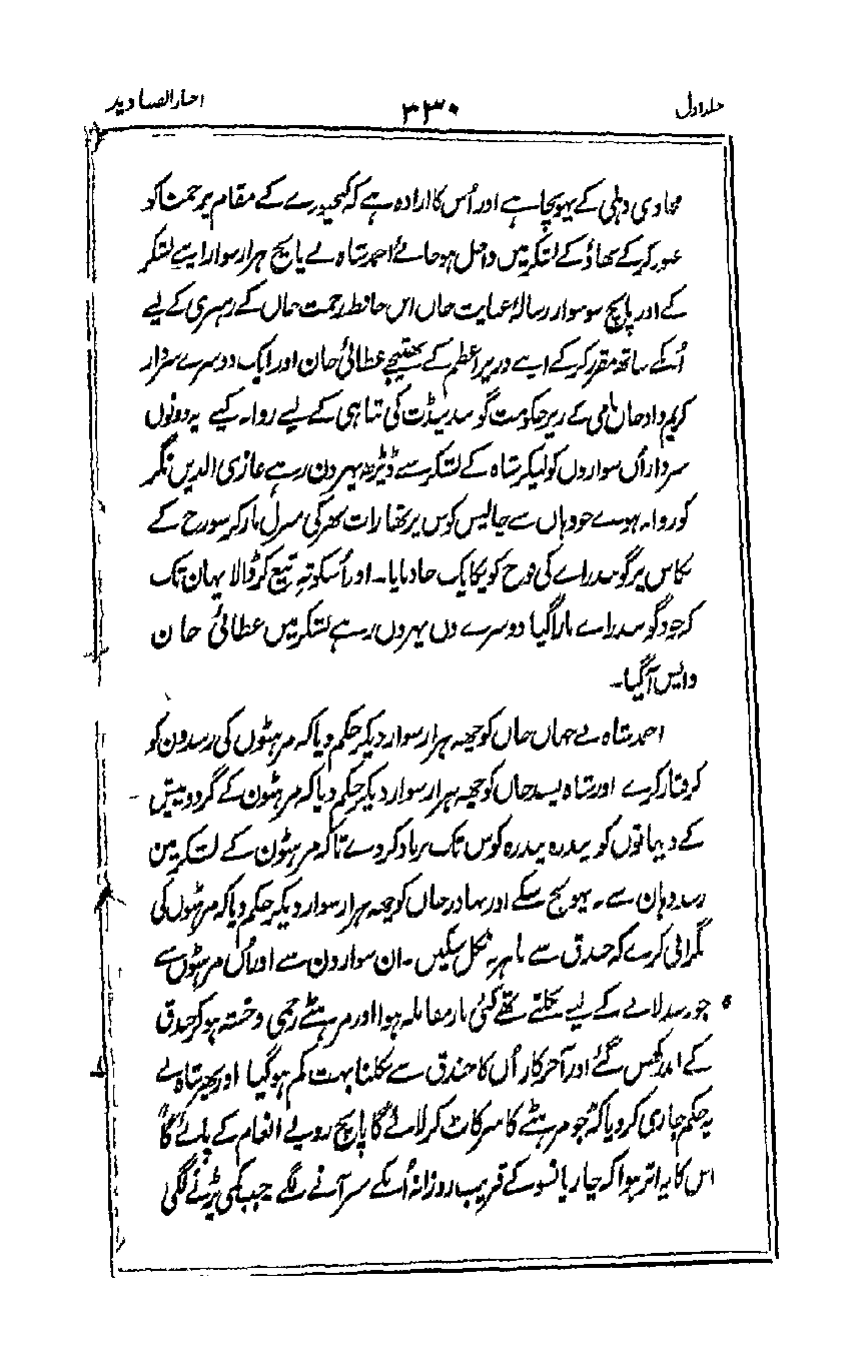 جلد اول ۳۳۰ اخبار الصنادید
محاذی دہلی کے پہونچا ہے اور اُس کا ارادہ ہے کہ کھیدرے کے مقام پر جمنا کو
عبور کرکے بھاؤ کے لشکر میں داخل ہو جائے احمد شاہ نے پانچ ہزار سوار اپنے لشکر
کے اور پانچ سو سوار رسالۂ عنایت خاں ابن حافظ رحمت خاں کے رہبری کے لیے
اُنکے ساتھ مقرر کرکے اپنے وزیر اعظم کے بھتیجے عطائی خان اور ایک دوسرے سردار
کریم داد خاں نامی کے زیر حکومت گوبند پنڈت کی تباہی کے لیے روانہ کیے یہ دونوں
سردار اُن سواروں کو لیکر شاہ کے لشکر سے ڈیڑھ پہر دن رہے غازی الدین نگر
کو روانہ ہوے جو وہاں سے چالیس کوس پر تھا رات بھر کی منزل مار کر سورج کے
نکاس پر گوبند راے کی فوج کو یکایک جا دبایا۔ اور اُسکو تہ تیغ کر ڈالا یہان تک
کہ خود گوبند راے مارا گیا دوسرے دن پہر دن رہے لشکر میں عطائی خان
واپس آگیا۔
احمد شاہ نے جہاں خاں کو چھہ ہزار سوار دیکر حکم دیا کہ مرہٹوں کی رسدون کو
گرفتار کرے اور شاہ پسند خاں کو چھہ ہزار سوار دیکر حکم دیا کہ مرہٹون کے گرد و پیش
کے دیہاتوں کو پندرہ پندرہ کوس تک برباد کردے تاکہ مرہٹون کے لشکر مین
رسد وہان سے نہ پہونچ سکے اور بہادر خاں کو چھہ ہزار سوار دیکر حکم دیا کہ مرہٹوں کی
نگرانی کرے کہ خندق سے باہر نہ نکل سکیں۔ ان سوارون سے اور اُن مرہٹوں سے
جو رسد لانے کے لیے نکلتے تھے کئی بار مقابلہ ہوا اور مرہٹے زخمی و خستہ ہو کر خندق
کے اندر گھس گئے اور آخر کار اُن کا خندق سے نکلنا بہت کم ہوگیا اور پھر شاہ نے
یہ حکم جاری کر دیا کہ جو مرہٹے کا سر کاٹ کر لائے گا پانچ روپے انعام کے پائے گا
اس کا یہ اثر ہوا کہ چار پانسو کے قریب روزانہ اُنکے سر آنے لگے جب کمی پڑنے لگی